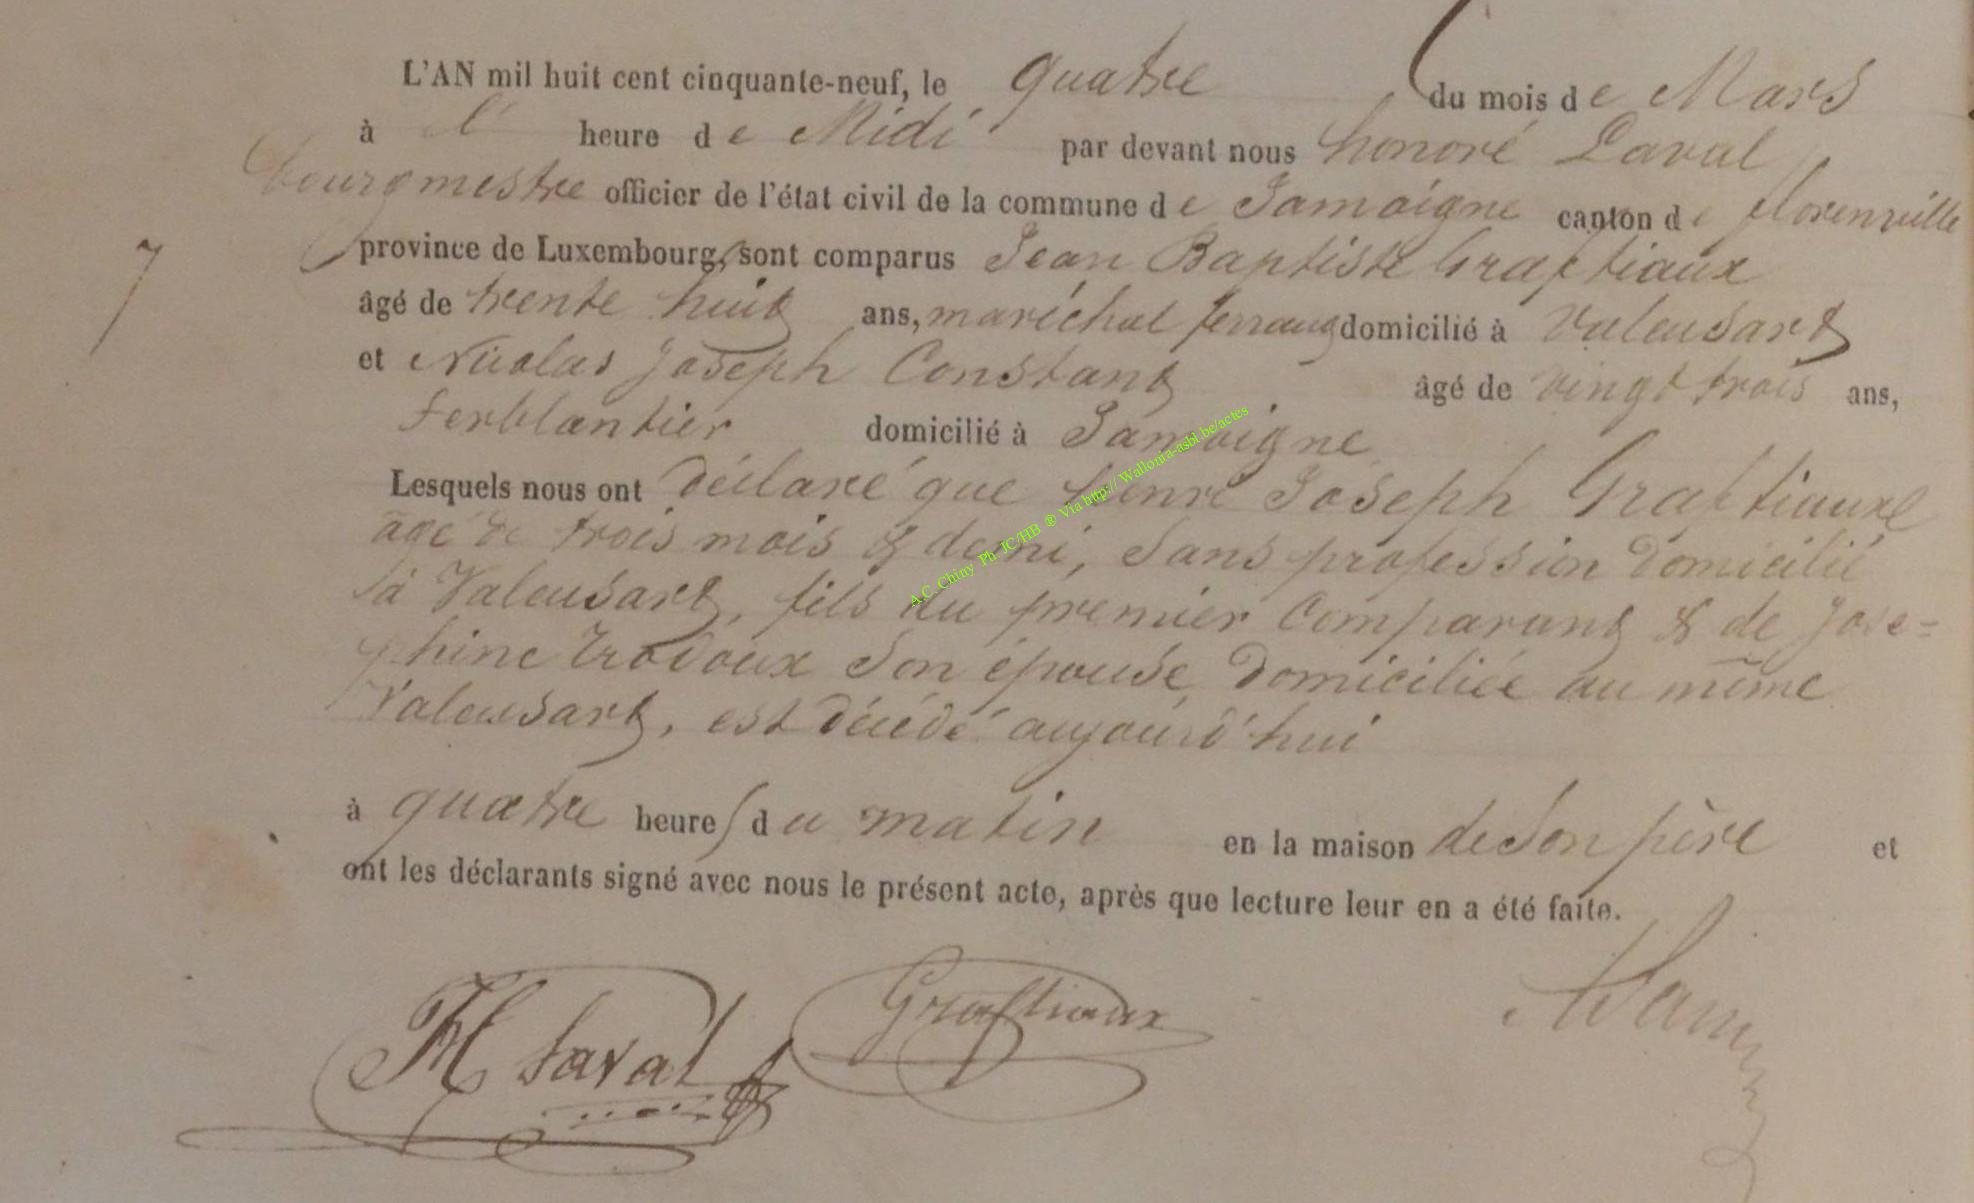 L'AN mil huit cent cinquante-neuf, le quatre du mois de Mars
à l' heure de Midi par devant nous honoré Laval
bourgmestre officier de l'état civil de la commune de Jamoigne canton de florenville
7 province de Luxembourg, sont comparus Jean Baptiste Graftiaux
âgé de trente huit ans, maréchal ferrant domicilié à Valensart
et Nicolas Joseph Constant âgé de vingt trois ans,
ferblantier domicilié à Jamoigne
Lesquels nous ont déclaré que henri Joseph Graftiaux
âgé de trois mois & demi, sans profession domicilié
à Valensart, fils du premier Comparant & de José=
phine Trodoux son épouse domiciliée au même
Valensart, est décédé aujourd'hui
à quatre heures du matin en la maison de son père et
ont les déclarants signé avec nous le présent acte, après que lecture leur en a été faite.
H Laval Graftiaux
A.C. Chiny Ph. JC/HB ® Via http://Wallonia-asbl.be/actes